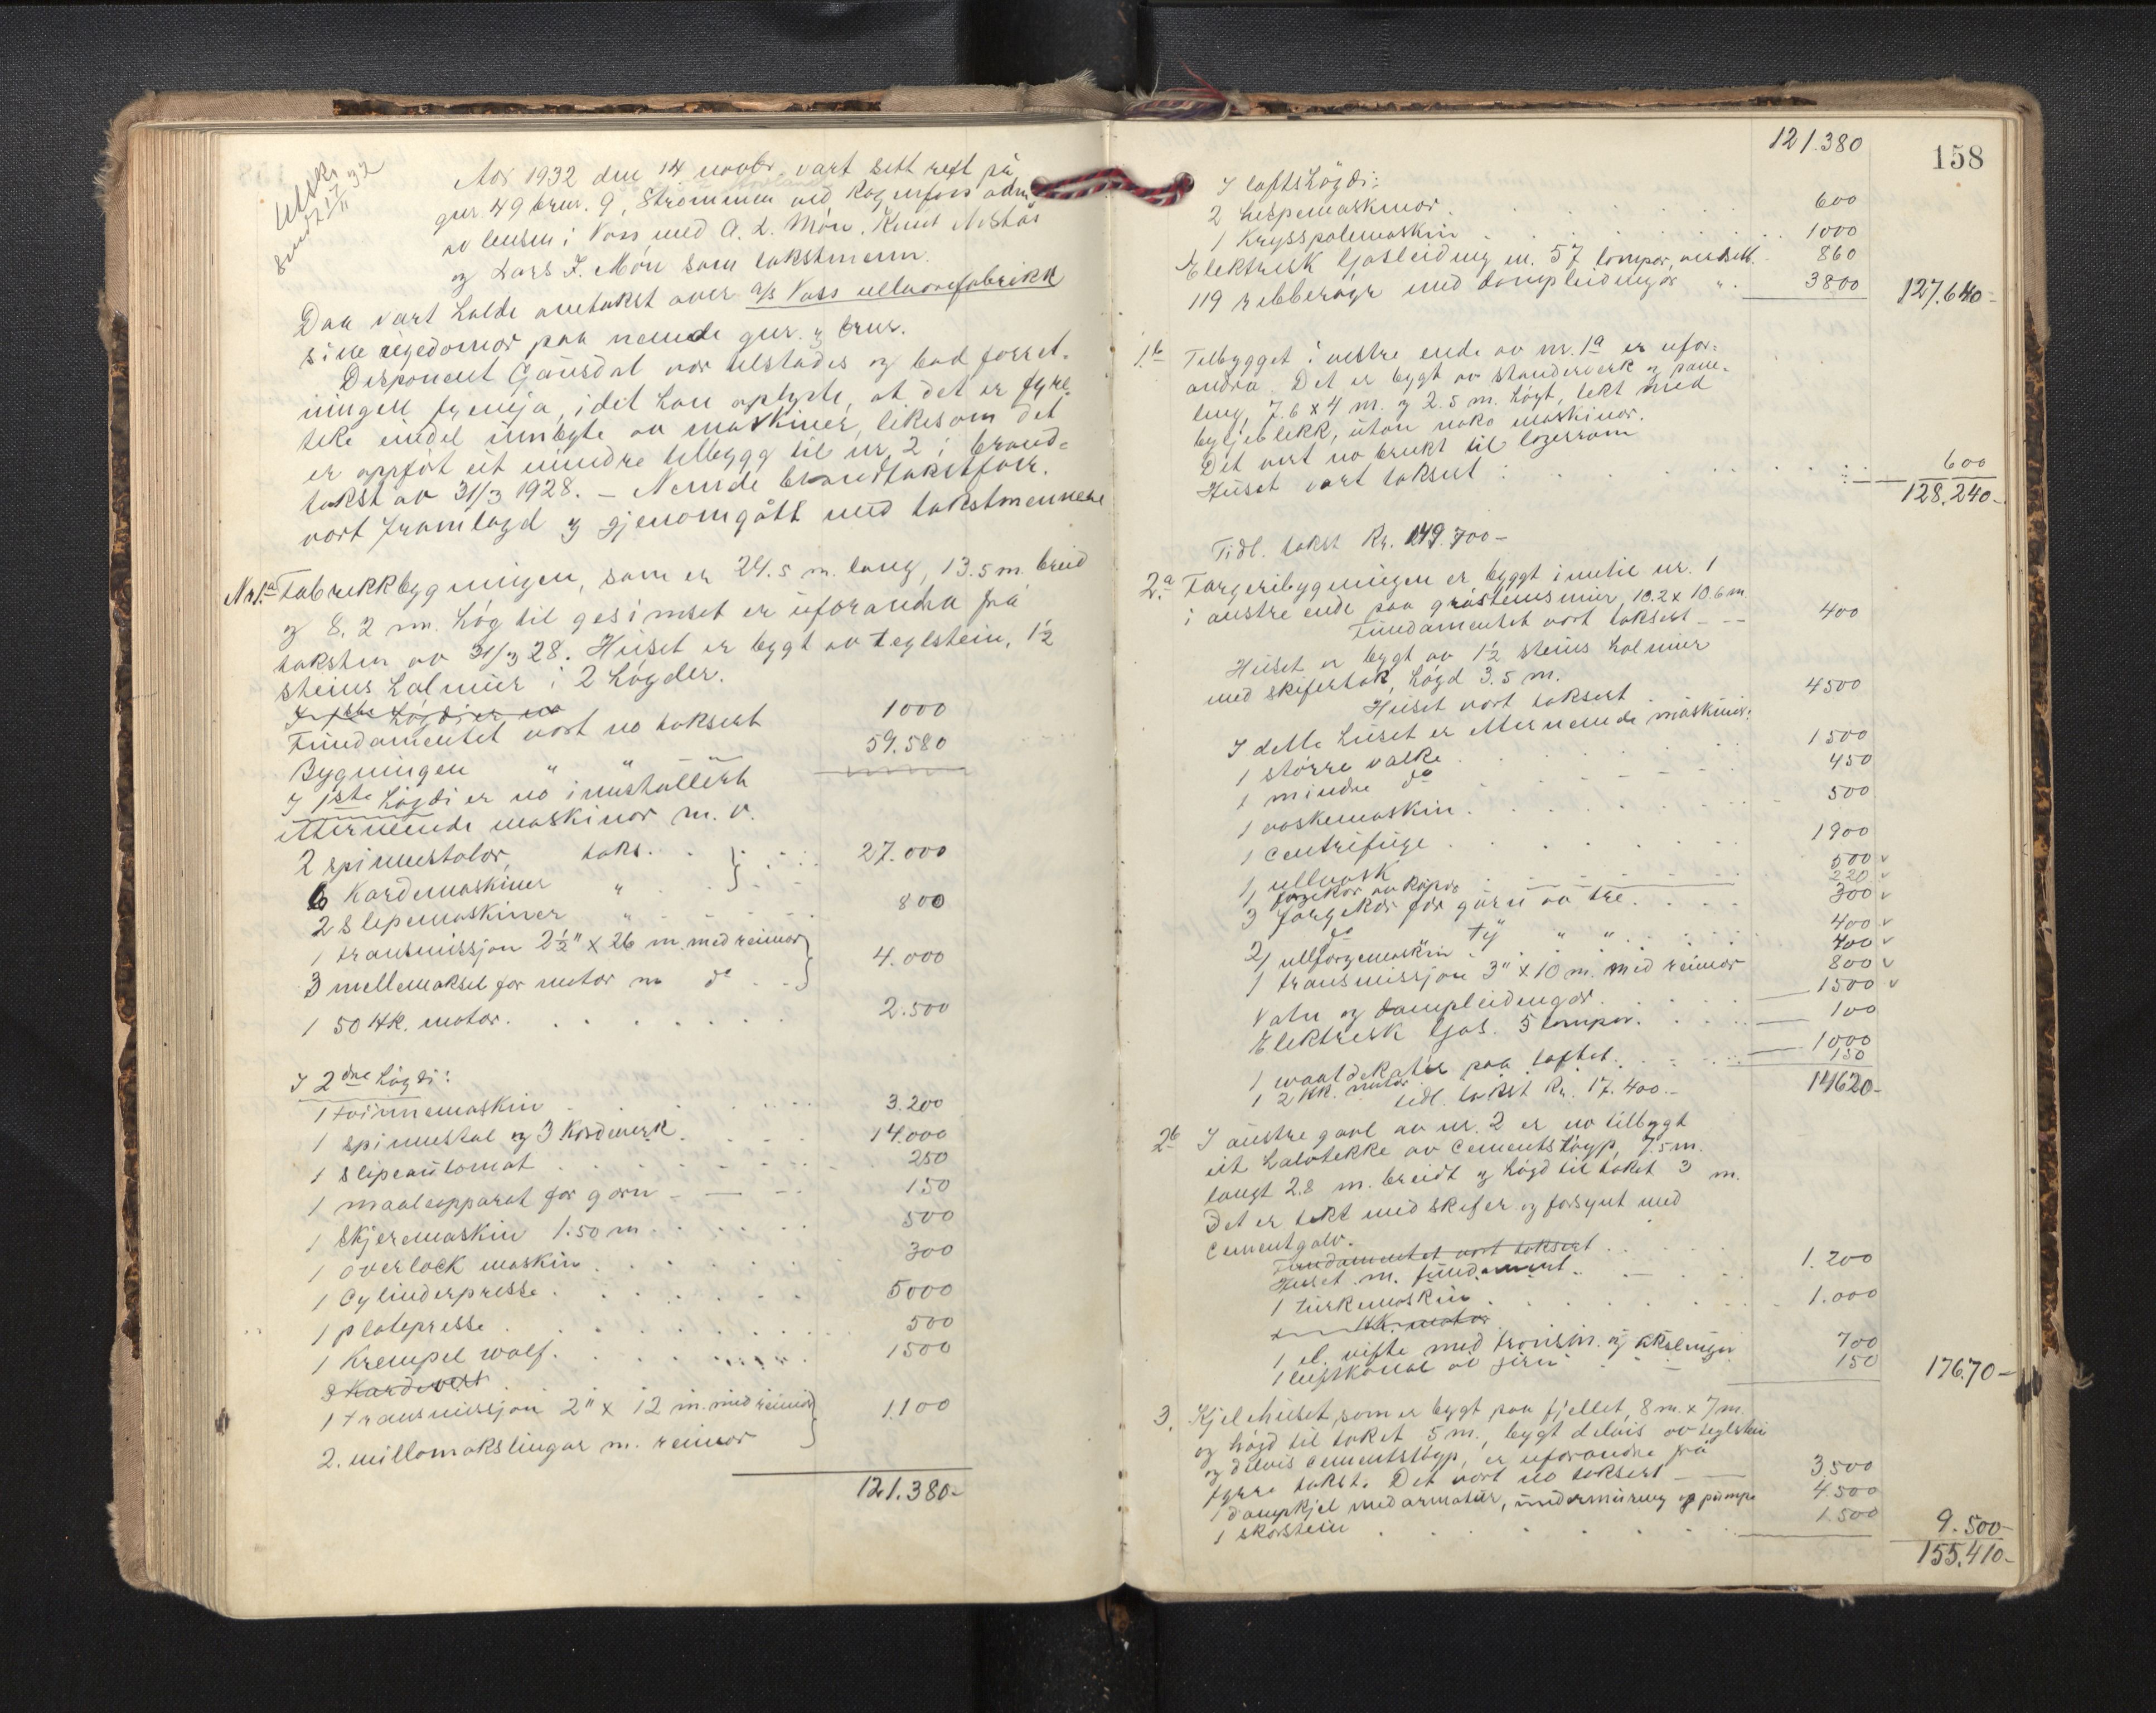 Utskr.
send 21/11 32
Aar 1932 den 14 novbr. vart sett rett på
gnr. 49 brnr. 9, Strømmen ved Rognsfoss adm
av lensm. i Voss med A. L. Møn, Knut
og Lars I. Møn som takstmenn.
Daa vart halde omtakst over A/S Voss ullvarefabrikk
sine eigedomar paa nemnde gnr. og brnr.
Disponent Gausdal var tilstades og bad forret-
ningen fremja, idet han oplyste, at det er fyre-
teke eindel innbyte av maskiner, likesom det
er oppført eit mindre tilbygg til nr. 2 i brand-
takst av 31/3 1928. – Nemnde brandtakstforr.
vart framlagd og gjenomgått med takstmennene
Nr 1.a Fabrikkbygningen, som er 24.5 m. lang, 13.5 m. breid
og 8.2 m. høg til gesimset er uforandra frå
taksten av 31/3 28. Huset er bygt av teglstein, 1½
steins holmur i 2 høgder.
I 1ste høgdi er no
Fundamentet vart no taksert 1000
Bygningen " " 59.580
I 1ste høgdi er no innstallert
etternemnde maskinor m. v.
2 spinnestolar, taks. . } 27.000
6 Kardemaskiner " . . }
2 Slipemaskiner " 800
1 transmissjon 2½" x 26 m. med reimar }
3 mellemaksel for motor m d° . . } 4.000
1 50 HK. motor. 2.500
I 2dre høgdi:
1 tvinnemaskin 3.200
1 spinnestol og 3 Kordverk. 14.000
1 slipeautomat 250
1 maaleapparat for garn 150
1 skjeremaskin 1.50 m 500
1 overlock maskin 300
1 Cylinderpresse 5000
1 platepresse 500
1 Krempel wolf. 1500
3 Kardeverk
1 transmissjon 2" x 12 m. med reimar }
2. millomakslingar m. reimar } 1.100
121.380-
121.380
158
I loftshøgdi:
2 hespemaskinor 600
1 Krysspolemaskin 1000
Elektrisk ljosleidning m. 57 lampor, verdsett. 860
119 ribberøyr med dampleidningar " 3800 127.640-
1.b Tilbygget i vestre ende av nr. 1a er ufor-
andra. Det er bygt av standerverk og pane-
ling, 7.6 x 4 m. og 2.5 m. høgt, tekt med
bylgjeblekk, utan noko maskinor.
Det vert no brukt til lagerrom
Huset vart taksert : 600
128.240-
Tidl. takst Kr. 149.700-
2.a Fargeribygningen er bygt inntil nr. 1
i austre ende paa gråsteinsmur 10.2 x 10.6 m
Fundamentet vart taksert - - - 400
Huset er bygt av 1½ steins holmur
med skifertak, høgd 3.5 m.
Huset vart taksert 4500
I dette huset er etternemnde maskinor:
1 større valke 1500
1 mindre d° 450
1 vaskemaskin. 500
1 centrifuge 1900
1 ullvask 500 v
1 fargekar av kopar 220 v
3 fargekar for garn av tre. 300 v
2 d° tøy " " 400 v
1 ullfargemaskin 400 v
1 transmissjon 3" x 10 m. med reimar 800 v
Vatn og dampleidningar 1500 v
Elektrisk ljos. 5 lampor. 100
1 vaatdekatur paa loftet. 1000
1 2 HK. motor 150
tidl. takst Kr. 17.400.- 14620-
2b I austre gavl av nr. 2 er no tilbygt
eit halvtekke av Cementstøyp, 7.5 m.
langt 2.8 m. breidt og høgd til taket 3 m.
Det er tekt med skifer og forsynt med
Cementgolv.
Fundamentet vart taksert
Huset m. fundament. 1.200
1 turkemaskin 1.000
HK. motor
1 el. vifte med transm. og akslingar 700
1 luftkanal av jern 150 17670-
3. Kjelehuset, som er bygt paa fjellet, 8 m. x 7 m.
og høgd til taket 5 m., bygt delvis av teglstein
og delvis cementstøyp, er uforandra frå
fyrre takst. Det vart no taksert 3.500
1 dampkjel med armatur, undermuring og pumpe 4.500
1 skorstein 1.500 9.500-
155.410-